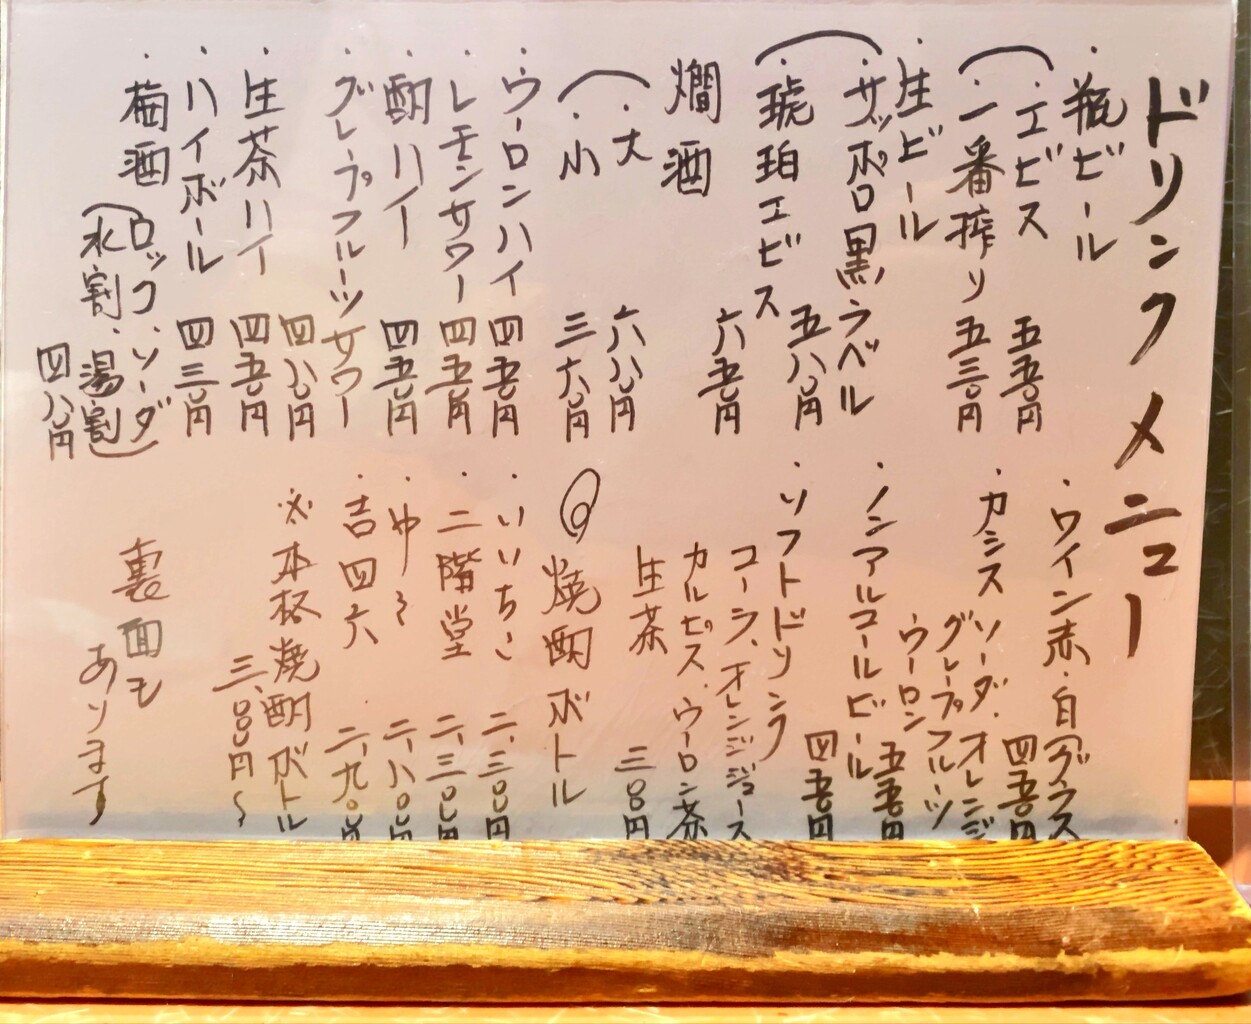 ドリンクメニュー
・瓶ビール
・エビス 五五〇円
・一番搾り 五三〇円
・生ビール
・サッポロ黒ラベル 五八〇円
・琥珀エビス 六五〇円
燗酒
・大 六八〇円
・小 三六〇円
・ウーロンハイ 四五〇円
・レモンサワー 四五〇円
・酎ハイ 四五〇円
・グレープフルーツサワー 四八〇円
・生茶ハイ 四五〇円
・ハイボール 四三〇円
・葡酒
(ロック・ソーダ
水割・湯割) 四八〇円
・ワイン赤・白(グラス
四五〇円
・カシス ソーダ・オレンジ
グレープフルーツ
ウーロン 五五〇円
・ノンアルコールビール
四五〇円
・ソフトドリンク
コーラ、オレンジジュース
カルピス・ウーロン茶
生茶 三〇〇円
◎焼酎ボトル
・いいちこ 二、三〇〇円
・二階堂 二、三〇〇円
・中々 二、八〇〇円
・吉四六 二、九〇〇円
※本格焼酎ボトル
三、〇〇〇円〜
裏面も
あります